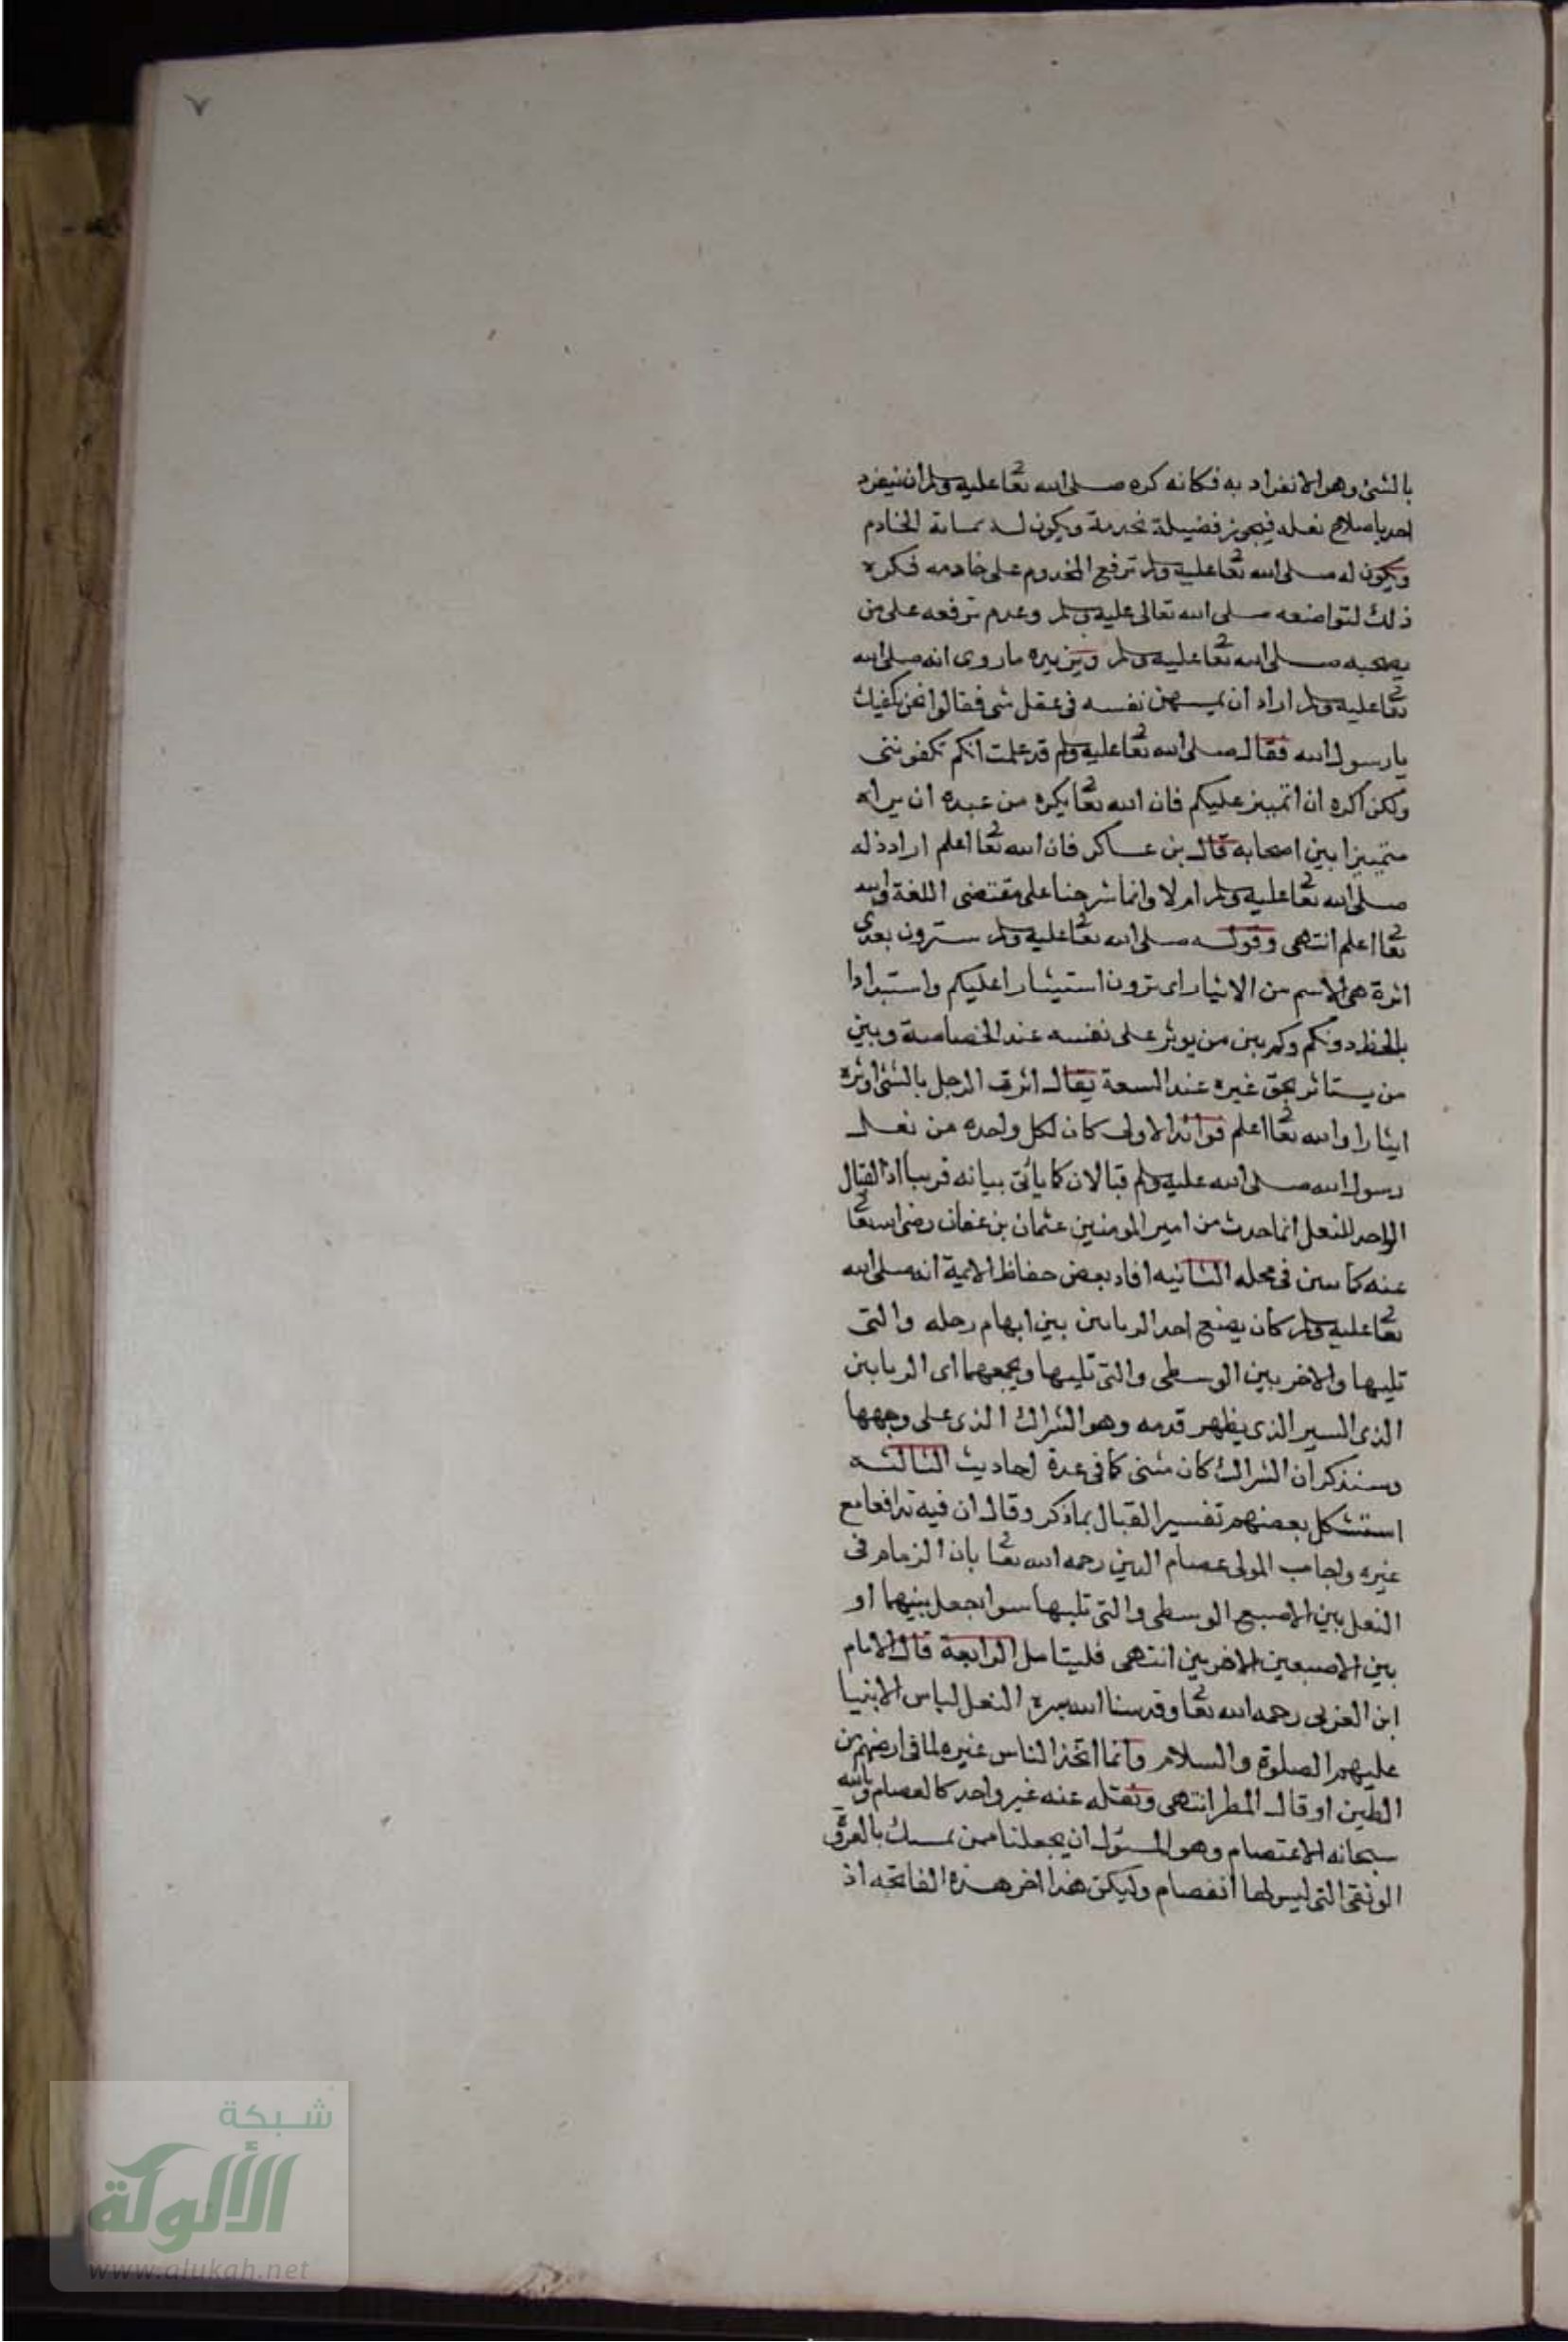 ٧
بالشئ وهو الانفراد به فكانه كره صلى الله تعا عليه وسلم ان ينفرد
احد باصلاح نعله فيجوز فضيلة بخدمة ويكون له بمثابة الخادم
ويكون له صلى الله تعا عليه وسلم ترفع المخدوم على خادمه فكره
ذلك لتواضعه صلى الله تعالى عليه وسلم وعدم ترفعه على من
يصحبه صلى الله تعا عليه وسلم ويزيده ما روى انه صلى الله
تعا عليه وسلم اراد ان يمتهن نفسه فى عقل شى فقالوا نحن نكفيك
يا رسول الله فقال صلى الله تعا عليه وسلم قد علمت انكم تكفوننى
ولكن اكره ان اتميز عليكم فان الله تعا يكره من عبده ان يراه
متميزا بين اصحابه قال بن عساكر فان الله تعا اعلم اراد ذله
صلى الله تعا عليه وسلم ام لا وانما شرحنا على مقتضى اللغة والله
تعا اعلم انتهى وقوله صلى الله تعا عليه وسلم سترون بعدى
اثرة هى الاسم من الايثار اى ترون استيثارا عليكم واستبدادا
بالحظ دونكم وكم بين من يوثر على نفسه عند الخصاصة وبين
من يستاثر بحق غيره عند السعة يقال اثرت الرجل بالشئ اوثره
ايثارا والله تعا اعلم فوائد الاولى كان لكل واحده من نعل
رسول الله صلى الله عليه وسلم قبالان كما ياتى بيانه قريبا اذ القبال
الواحد للنعل انما حدث من امير المومنين عثمان بن عفان رضى الله تعا
عنه كما سين فى محله الثانيه افاد بعض حفاظ الائمة انه صلى الله
تعا عليه وسلم كان يضع احد الزمامين بين ابهام رجله والتى
تليها والاخر بين الوسطى والتى تليها ويجمعهما اى الزمامين
الذى السير الذى يظهر قدمه وهو الشراك الذى على وجهها
وسنذكر ان الشراك كان مثنى كما فى عدة احاديث الثالثه
استشكل بعضهم تفسير القبال بما ذكر وقال ان فيه تدافعا مع
غيره واجاب المولى عصام الدين رحمه الله تعا بان الزمام فى
النعل بين الاصبع الوسطى والتى تليها سوا جعل بينهما او
بين الاصبعين الاخريين انتهى فليتامل الرابعة قال الامام
ابن العربى رحمه الله تعا وقدسنا الله بسره النعل لباس الانبيا
عليهم الصلوة والسلام وانما اتخذ الناس غيره لما فى ارضهم من
الطين او قال المطر انتهى ونقله عنه غير واحد كالعصام وبالله
سبحانه الاعتصام وهو المسئول ان يجعلنا ممن تمسك بالعروة
الوثقى التى ليس لها انفصام وليكن هذا اخر هذه الفاتحه اذ
شبكة
الألوكة
www.alukah.net